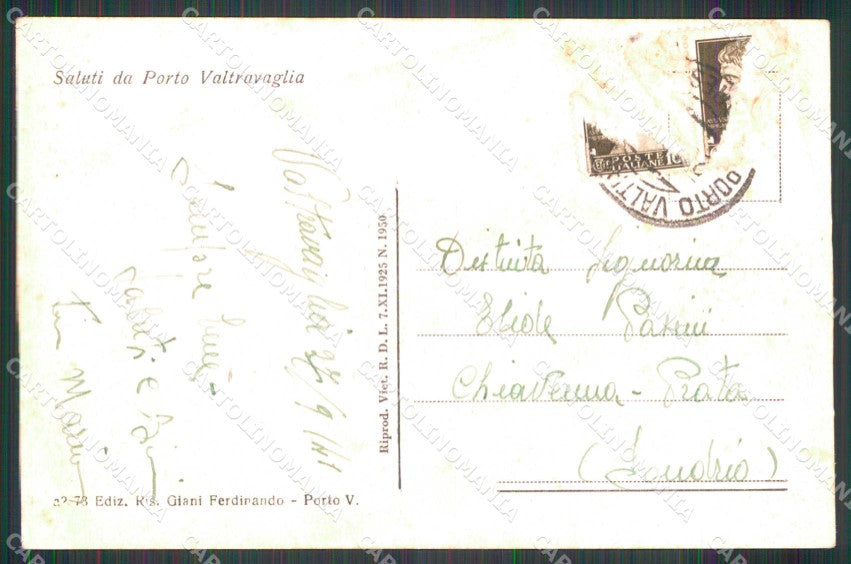 Saluti da Porto Valtravaglia
POSTE
ITALIANE 10
PORTO VALT
Valtravaglia 28/9/41
Sempre bene
saluti e Baci
Distinta Signorina
Elide Panini
Chiavenna - Prata
(Sondrio)
Riprod. Viet. R. D. L. 7.XI.1925 N. 1950
Ediz. Ris. Giani Ferdinando - Porto V.
CARTOLINOMANIA